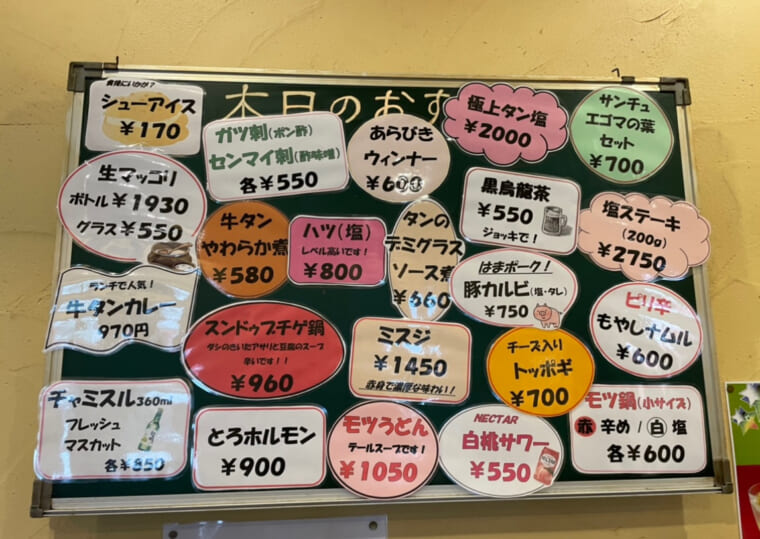 本日のおす
食後にいかが?
シューアイス
¥170
ガツ刺(ポン酢)
センマイ刺(酢味噌)
各¥550
あらびき
ウィンナー
¥600
極上タン塩
¥2000
サンチュ
エゴマの葉
セット
¥700
生マッコリ
ボトル ¥1930
グラス ¥550
牛タン
やわらか煮
¥580
ハツ(塩)
レベル高いです!
¥800
タンの
デミグラス
ソース煮
¥660
黒烏龍茶
¥550
ジョッキで!
塩ステーキ
(200g)
¥2750
ランチで人気!
牛タンカレー
970円
スンドゥブチゲ鍋
ダシのきいたアサリと豆腐のスープ
辛いです!!
¥960
ミスジ
¥1450
赤身で濃厚な味わい!
はまポーク!
豚カルビ(塩・タレ)
¥750
チーズ入り
トッポギ
¥700
ピリ辛
もやしナムル
¥600
チャミスル360ml
フレッシュ
マスカット
各¥850
とろホルモン
¥900
モツうどん
テールスープです!
¥1050
NECTAR
白桃サワー
¥550
モツ鍋(小サイズ)
赤 辛め / 白 塩
各¥600